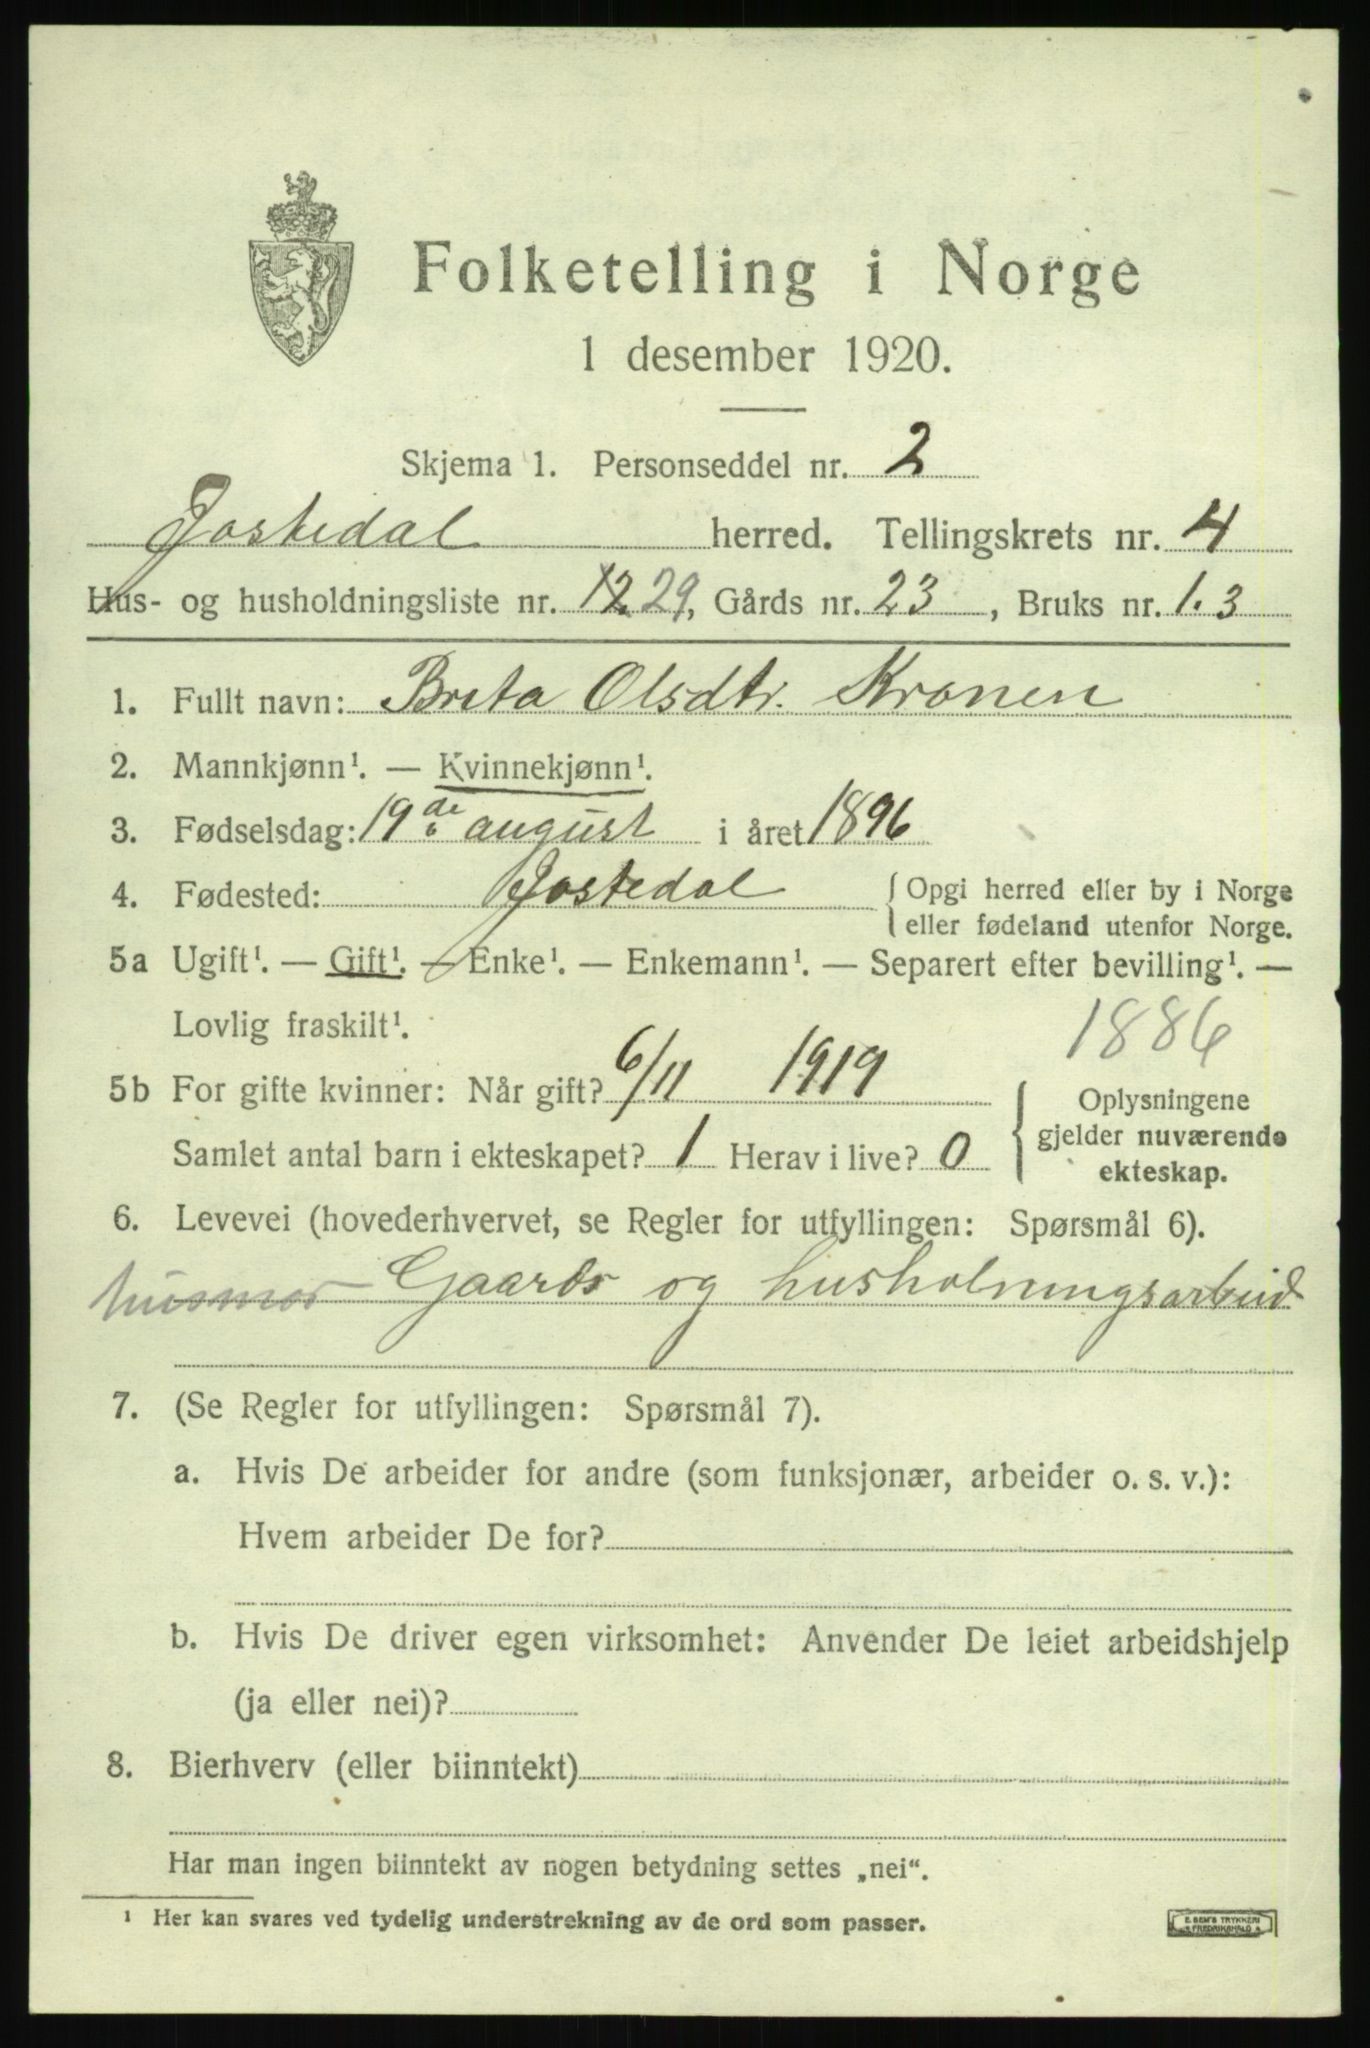 Folketelling i Norge
1 desember 1920.
Skjema 1. Personseddel nr. 2
Jostedal herred. Tellingskrets nr. 4
Hus- og husholdningsliste nr. 12 29, Gårds nr. 23, Bruks nr. 1.3
1. Fullt navn: Brita Olsdtr. Kronen
2. Mannkjønn¹. — Kvinnekjønn¹.
3. Fødselsdag: 19de august i året 1896
4. Fødested: Jostedal { Opgi herred eller by i Norge
eller fødeland utenfor Norge.
5a Ugift¹. — Gift¹. — Enke¹. — Enkemann¹. — Separert efter bevilling¹. —
Lovlig fraskilt¹. 1886
5b For gifte kvinner: Når gift? 6/11 1919 { Oplysningene
gjelder nuværende
Samlet antal barn i ekteskapet? 1 Herav i live? 0
ekteskap.
6. Levevei (hovederhvervet, se Regler for utfyllingen: Spørsmål 6).
husmor Gaards og husholningsarbeid
7. (Se Regler for utfyllingen: Spørsmål 7).
a. Hvis De arbeider for andre (som funksjonær, arbeider o. s. v.):
Hvem arbeider De for?
b. Hvis De driver egen virksomhet: Anvender De leiet arbeidshjelp
(ja eller nei)?
8. Bierhverv (eller biinntekt)
Har man ingen biinntekt av nogen betydning settes „nei“.
¹ Her kan svares ved tydelig understrekning av de ord som passer.
E. SEM'S TRYKKERI
FREDRIKSHALD